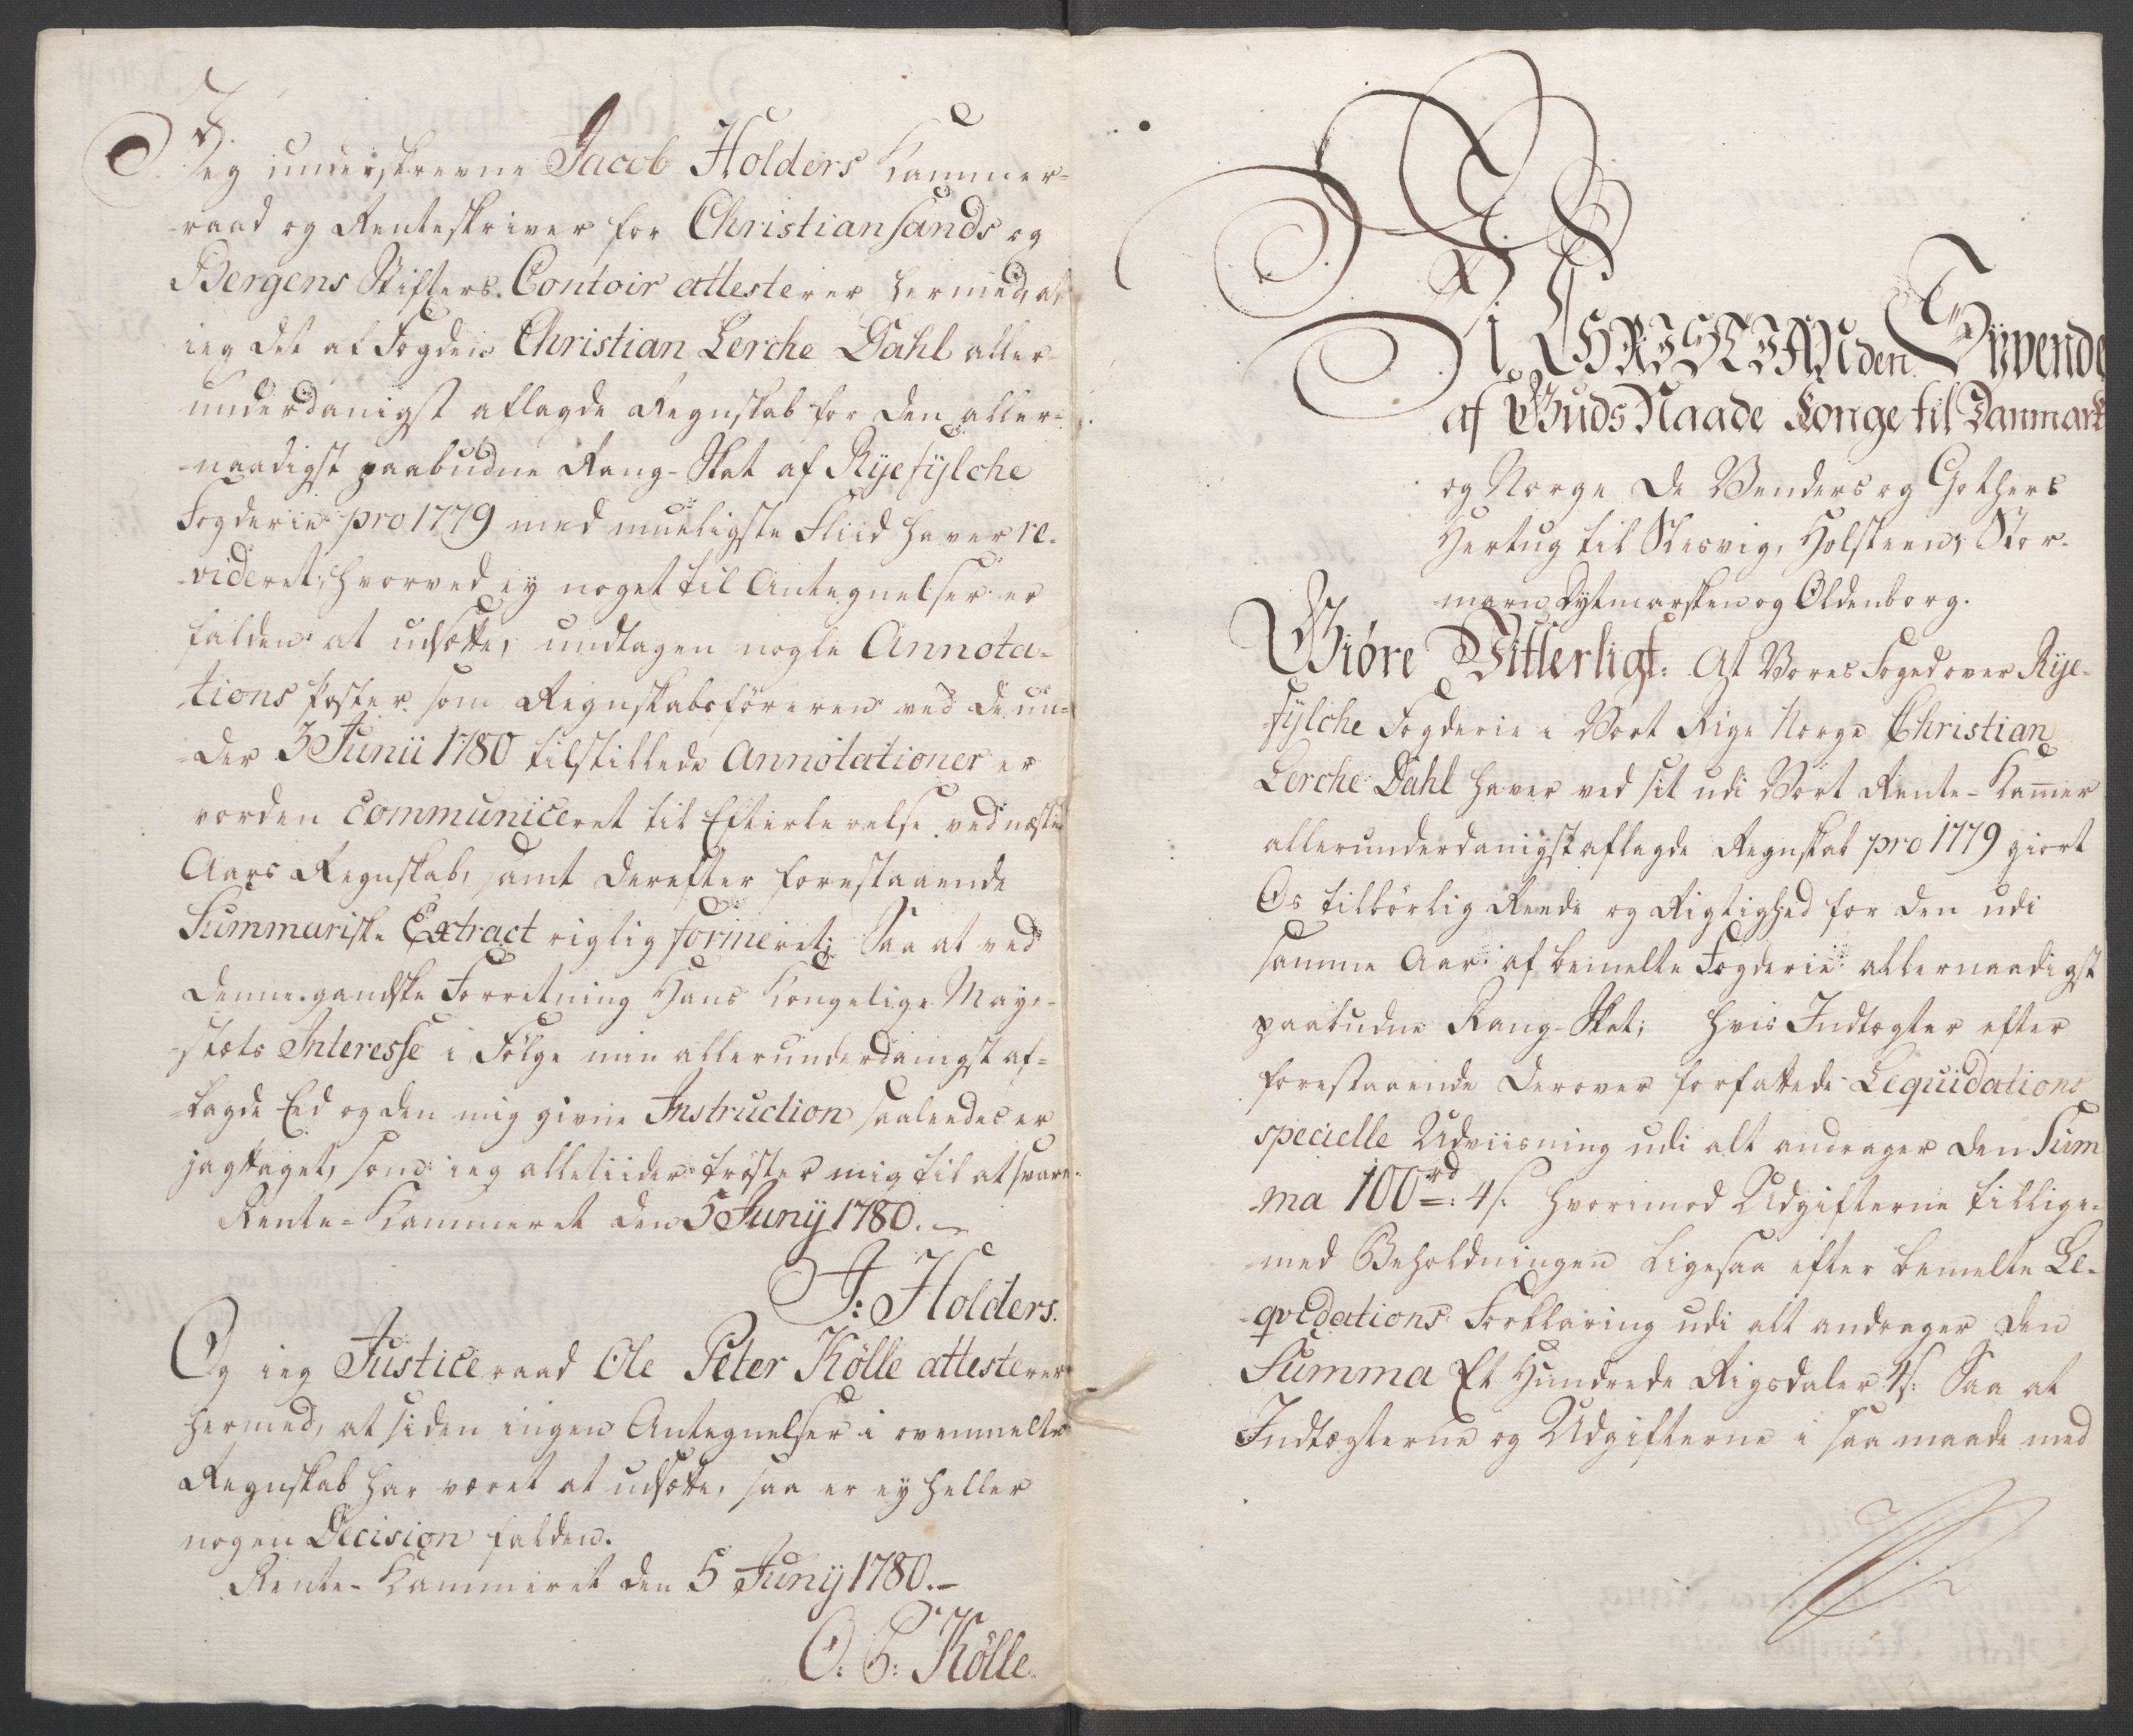 Jeg underskrevne Jacob Holders Kammer-
raad og Renteskriver for Christiansands og
Bergens Stifters Contoir attesterer hermed, at
ieg det af Fogden Christian Lerche Dahl aller-
underdanigst aflagde Regnskab for den aller-
naadigst paabudne Rang-Skat af Ryefylche
Fogderie pro 1779 med mueligste Fliid haver re-
videret, hvorved ey noget til Antegnelser er
falden at udsætte, undtagen nogle Annota-
tions Poster som Regnskabsføreren ved de un-
der 3 Junii 1780 tilstillede Annotationer er
vorden communiceret til Efterlevelse ved næste
Aars Regnskab, samt derefter forestaaende
Summariske Extract rigtig formeret; Saa at ved
denne gandske Forretning Hans Kongelige Maye-
stæts Interesse i Følge min allerunderdanigst af-
lagde Eed og den mig givne Instruction saaledes er
jagttaget, som ieg alletiider trøster mig til at svare.
Rente-Kammeret den 5 Junij 1780.
J: Holders.
Og ieg Justiceraad Ole Peter Kölle attesterer
hermed, at siden ingen Antegnelser i ovenmelte
Regnskab har været at udsætte, saa er ey heller
nogen Decision falden.
Rente-Kammeret den 5 Junij 1780.
O: P: Kölle.
Vi CHRISTIAN den Syvende
af Guds Naade Konge til Danmark
og Norge De Venders og Gothers
Hertug til Slesvig, Holsteen, Stor-
marn Dytmarsken og Oldenborg.
Giöre Vitterligt: At Vores Foged over Rye-
fylche Fogderie i Vort Rige Norge Christian
Lerche Dahl haver ved sit udi Vort Rente-Kam̅er
allerunderdanigst aflagde Regnskab pro 1779 giort
Os tilbørlig Reede og Rigtighed for den udi
samme Aar af bemelte Fogderie allernaadigst
paabudne Rang-Skat; hvis Indtægter efter
forestaaende derover forfattede Lequidations
specielle Udviisning udi alt andrager den Sum
ma 100 rd: 4 s. hvorimod Udgifterne tillige-
med Beholdningen ligesaa efter bemelte Le-
qvidations Forklaring udi alt andrager den
Summa Et Hundrede Rigsdaler 4 s: Saa at
Indtægterne og Udgifterne i saa maade med